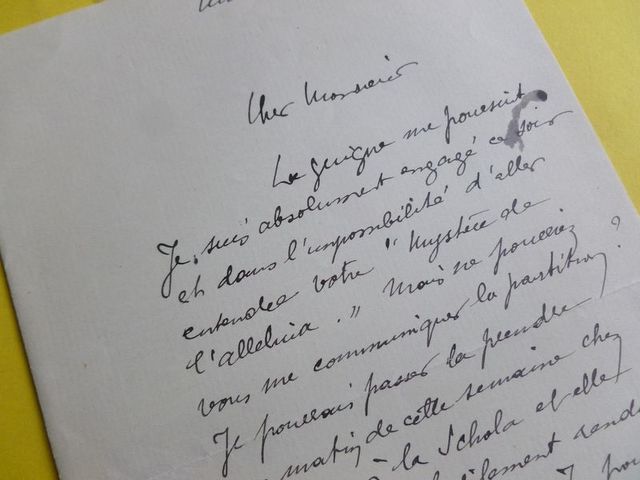 Cher Monsieur
La guigne me poursuit
Je suis absolument engagé ce soir
et dans l'impossibilité d'aller
entendre votre "Mystère de
l'alleluia." Mais ne pouvez
vous me communiquer la partition ?
Je pourrais passer la prendre
matin de cette semaine chez
la Schola et elle